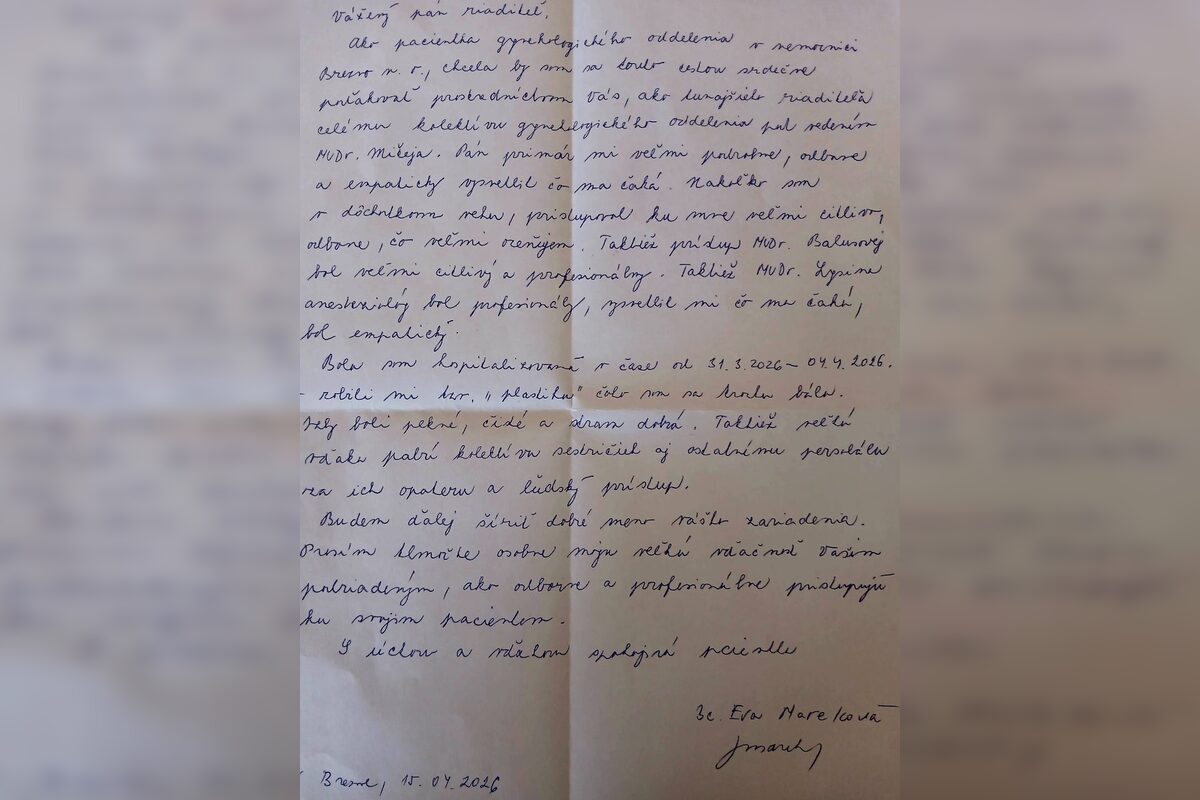 Vážený pán riaditeľ,
Ako pacientka gynekologického oddelenia v nemocnici
Brezno n. o., chcela by som sa touto cestou srdečne
poďakovať prostredníctvom Vás, ako tunajšieho riaditeľa
celému kolektívu gynekologického oddelenia pod vedením
MUDr. Mičeja. Pán primár mi veľmi podrobne, odborne
a empaticky vysvetlil čo ma čaká. Nakoľko som
v dôchodkovom veku, pristupoval ku mne veľmi citlivo,
odborne, čo veľmi oceňujem. Taktiež prístup MUDr. Balusovej
bol veľmi citlivý a profesionálny. Taktiež MUDr. Lysina
anesteziológ bol profesionály, vysvetlil mi čo ma čaká,
bol empatický.
Bola som hospitalizovaná v čase od 31.3.2026 – 04.4.2026.
- robili mi tzv. "plastiku" čoho som sa trochu bála.
Izby boli pekné, čisté a strava dobrá. Taktiež veľká
vďaka patrí kolektívu sestričiek aj ostatnému personálu
za ich opateru a ľudský prístup.
Budem ďalej šíriť dobré meno vášho zariadenia.
Prosím tlmočte osobne moju veľkú vďačnosť Vašim
podriadeným, ako odborne a profesionálne pristupujú
ku svojim pacientom.
S úctou a vďakou spokojná pacientka
Bc. Eva Mareková
V Brezne, 15.04.2026